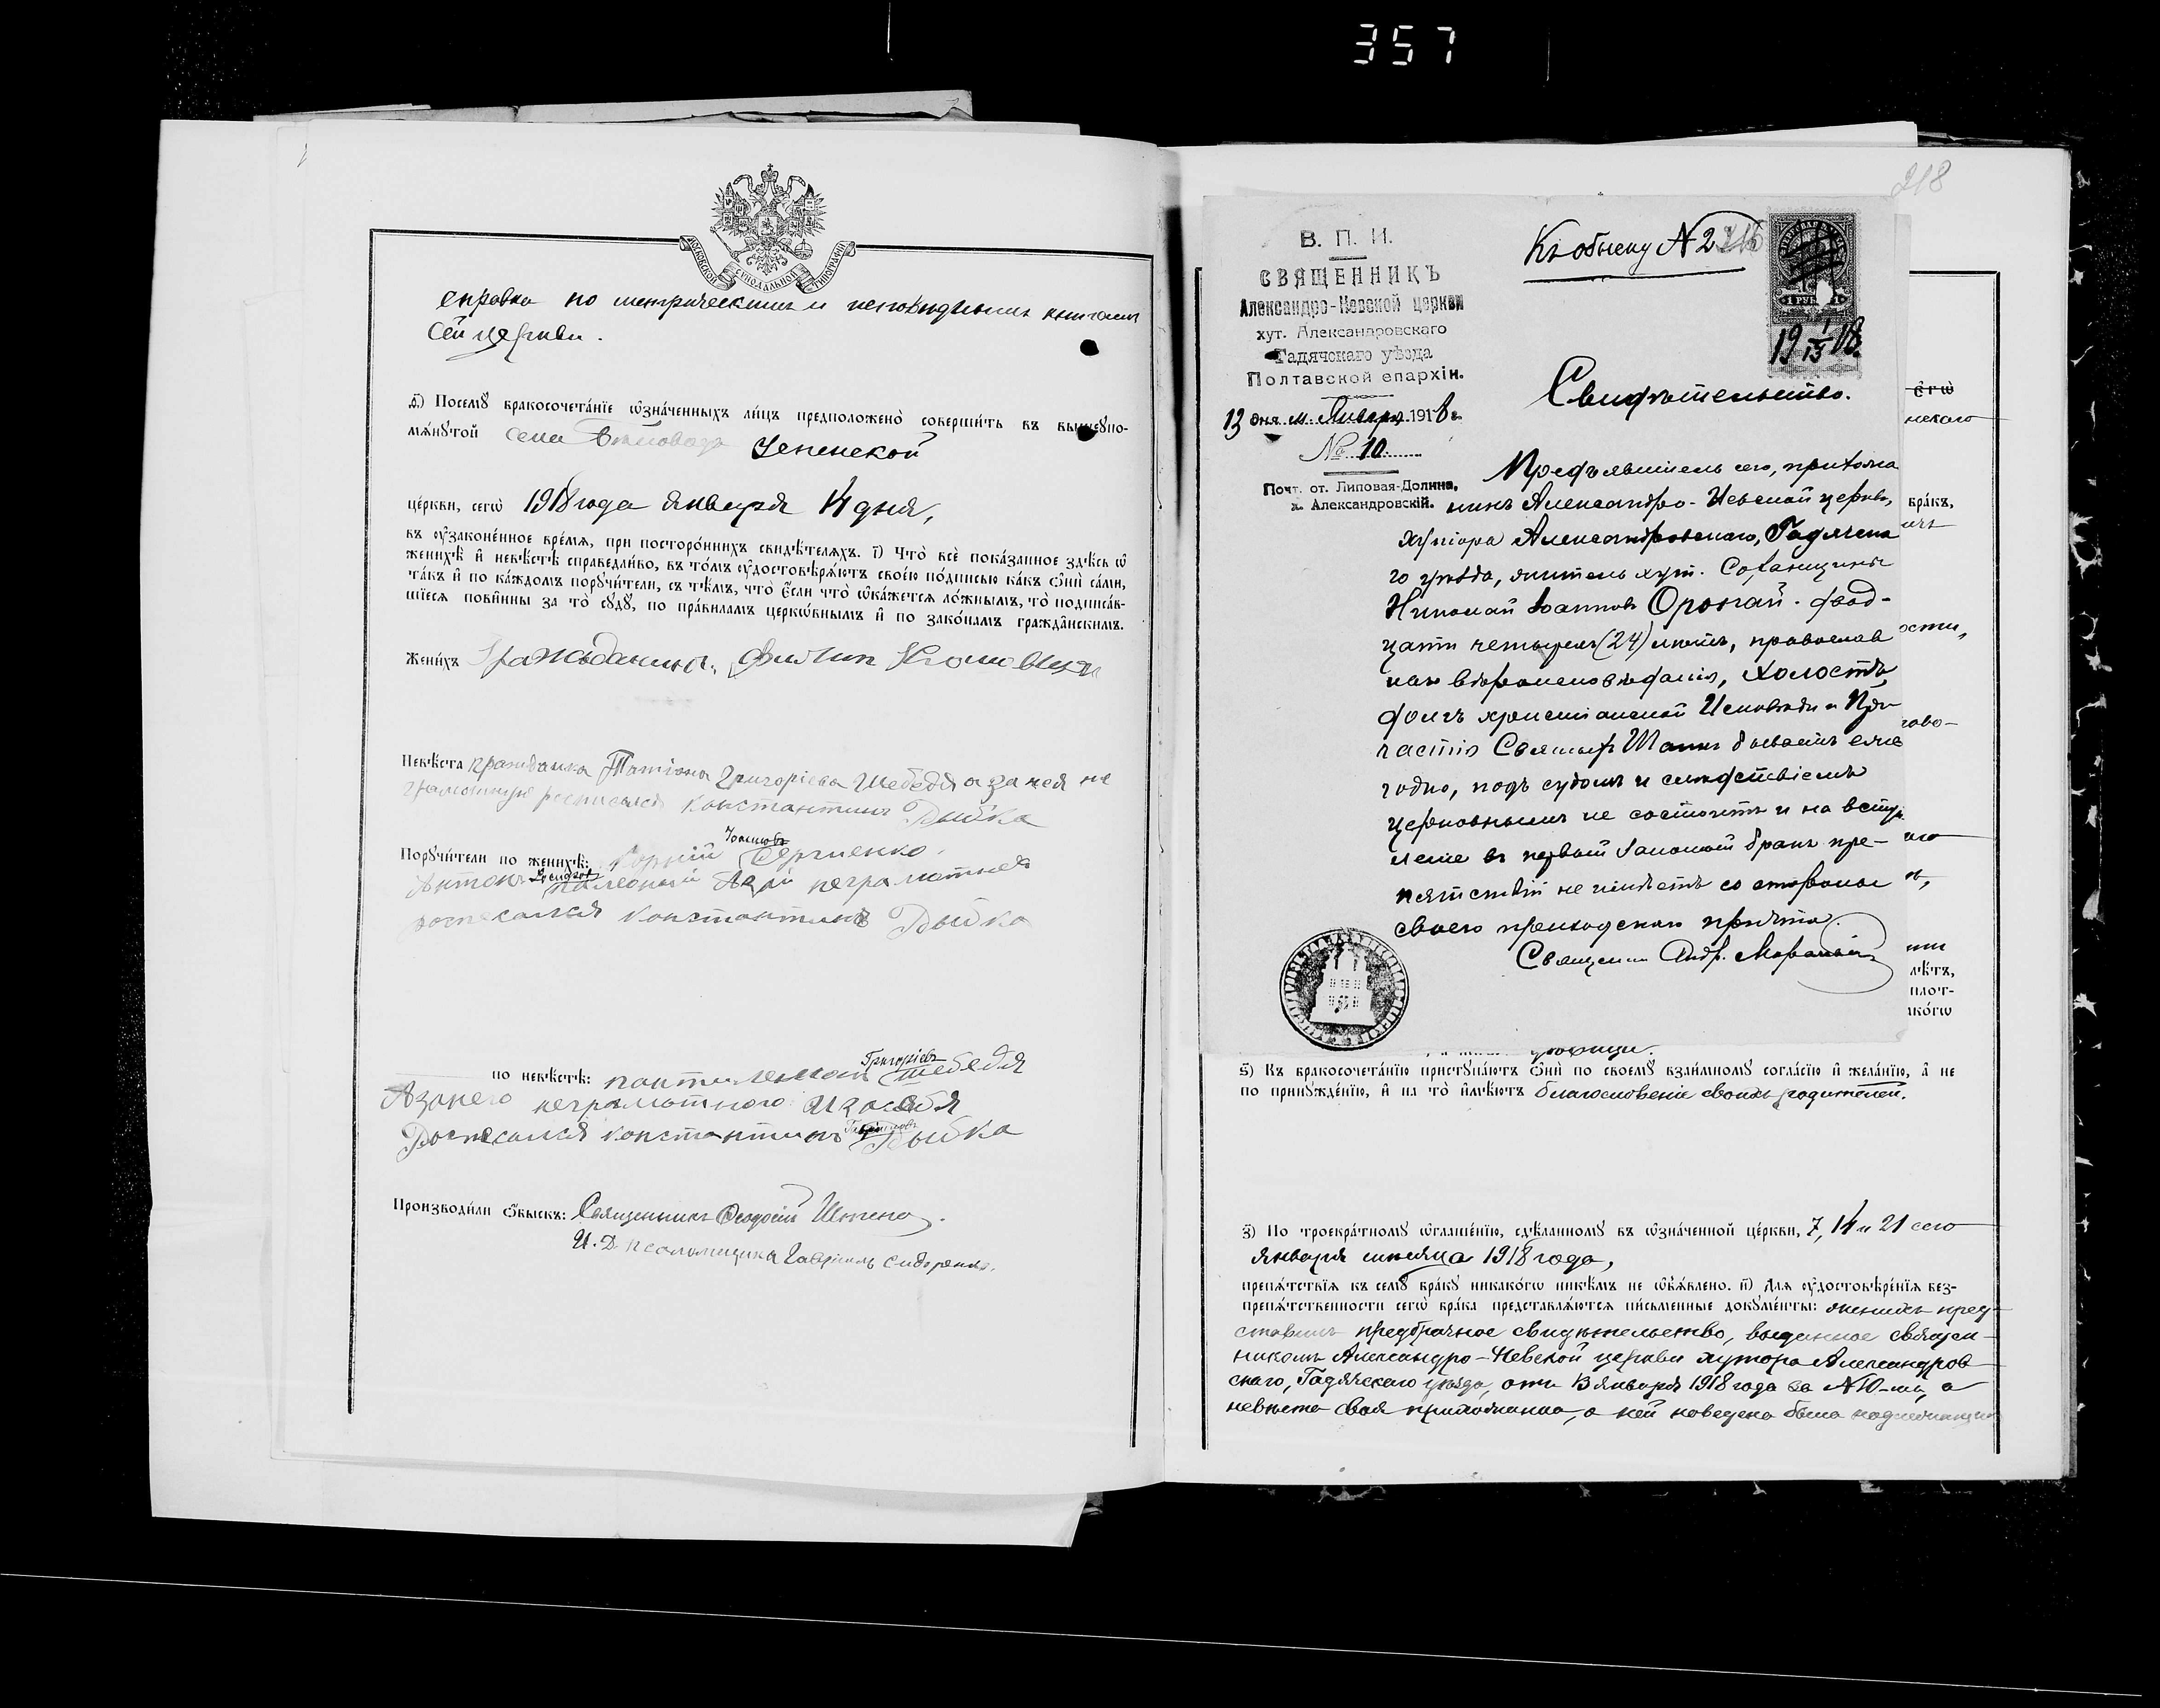 357
МОСКОВСКОЙ СУНОДАЛЬНОЙ ТИПОГРАФІИ
справка по метрическимъ и исповѣднымъ книгамъ
сей церкви.
Посемꙋ̀ бракосочета́нїе ѡ҆зна́ченныхъ ли́цъ предположено̀ соверши́ть въ вышеꙋпо-
мѧ́нꙋтой села Успенской
це́ркви, сегѡ̀ 1918 года января 14 дня,
въ ᲂу҆зако́ненное вре́мѧ, при посторо́ннихъ свидѣ́телѧхъ. і҃) Что̀ всѐ пока́занное здѣ́сь ѡ҆
женихѣ̀ и҆ невѣ́стѣ справедли́во, въ то́мъ ᲂу҆достовѣрѧ́ютъ свое́ю по́дписью ка́къ ѻ҆нѝ са́ми,
та́къ и҆ по ка́ждомъ порꙋчи́тели, съ тѣ́мъ, что̀ є҆́сли что̀ ѡ҆ка́жетсѧ ло́жнымъ, то̀ подписа́в-
шїесѧ пови́нны за то̀ сꙋдꙋ̀, по пра́виламъ церко́внымъ и҆ по зако́намъ гражда́нскимъ.
Жени́хъ Гражданинъ Филип
Невѣ́ста гражданка Татіана Григоріева Шебедя а за нея не
грамотную росписался Константинъ Рыбка
Порꙋчи́тели по женихѣ̀: Корній Іоанновъ Сергіенко
Антонъ неграмотнаго
росписался Константинъ Рыбка
по невѣ́стѣ: пантилемон Григоріевъ Шебедя
А за него неграмотного и за себя
Росписался Константинъ Рыбка
Производи́ли ѻ҆́быскъ: Священникъ Ѳеодосій
И. Д. псаломщика Гавріилъ Сидоренко.
218
В. П. И.
СВЯЩЕННИКЪ
Александро-Невской церкви
хут. Александровскаго
Гадячскаго уѣзда
Полтавской епархіи.
13 дня м. Января 1918 г.
№ 10
Почт. от. Липовая-Долина,
х. Александровскій.
Къ обыску № 2
1 РУБ. 1
19 I/13 18
Свидѣтельство.
Предъявитель сего, прихожа
нинъ Александро-Невской церкви,
хутора Александровскаго, Гадячска
го уѣзда, житель хут.
Николай Іоанновъ двад-
цати четырехъ (24) лѣтъ, православ
наго вѣроисповѣданія, холостъ,
долгъ христианской Исповѣди и При-
частія Святыхъ Таинъ бываетъ еже
годно, подъ судомъ и слѣдствіемъ
церковнымъ не состоитъ и на вступ
леніе въ первый законный бракъ пре-
пятствій не имѣетъ со стороны
своего приходскаго причта.
Священникъ Андр.
є҆гѡ̀
бра́къ,
ости,
лѣ́тъ,
плот-
ѕ҃) Къ бракосочета́нїю пристꙋпа́ютъ ѻ҆нѝ по своемꙋ̀ взаи́мномꙋ согла́сїю и҆ жела́нїю, а҆ не
по принꙋжде́нїю, и҆ на то̀ и҆мѣ́ютъ благословеніе своихъ родителей.
з҃) По троекра́тномꙋ ѡ҆глаше́нїю, сдѣ́ланномꙋ въ ѡ҆зна́ченной це́ркви, 7, 14 и 21 сего
января мѣсяца 1918 года,
препѧ́тствїѧ къ семꙋ̀ бра́кꙋ никако́гѡ никѣ́мъ не ѡ҆б̾ѧ́влено. и҃) Длѧ ᲂу҆достовѣре́нїѧ без-
препѧ́тственности сегѡ̀ бра́ка представлѧ́ютсѧ пи́сьменные докꙋме́нты: женихъ пред-
ставилъ предбрачное свидѣтельство, выданное священ-
никомъ Александро-Невской церкви хутора Александров
скаго, Гадячскаго уѣзда, отъ 13 января 1918 года за № 10-мъ, а
невѣста своя прихожанка, о ней наведена была надлежащая